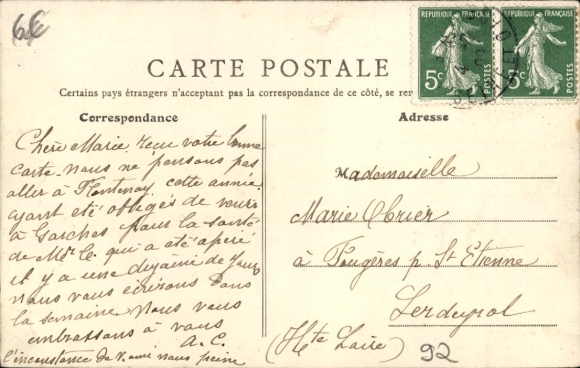 6€
REPUBLIQUE FRANÇAISE
5c
POSTES
REPUBLIQUE FRANÇAISE
5c
POSTES
CARTE POSTALE
Certains pays étrangers n'acceptant pas la correspondance de ce côté, se ren
Correspondance
Chère Marie, reçu votre bonne
carte. nous ne pensons pas
aller à Fontenay, cette année,
ayant été obligés de venir
à Garches pour la santé
de Mr C. qui a été opéré
il y a une dizaine de jours
nous vous écrirons dans
la semaine Nous vous
embrassons à vous
A. C.
l'inconstance de V. ami nous peine
Adresse
Mademoiselle
Marie Obrier
à Fougères p. St Etienne
Lerdeyrol
(Hte Loire)
92